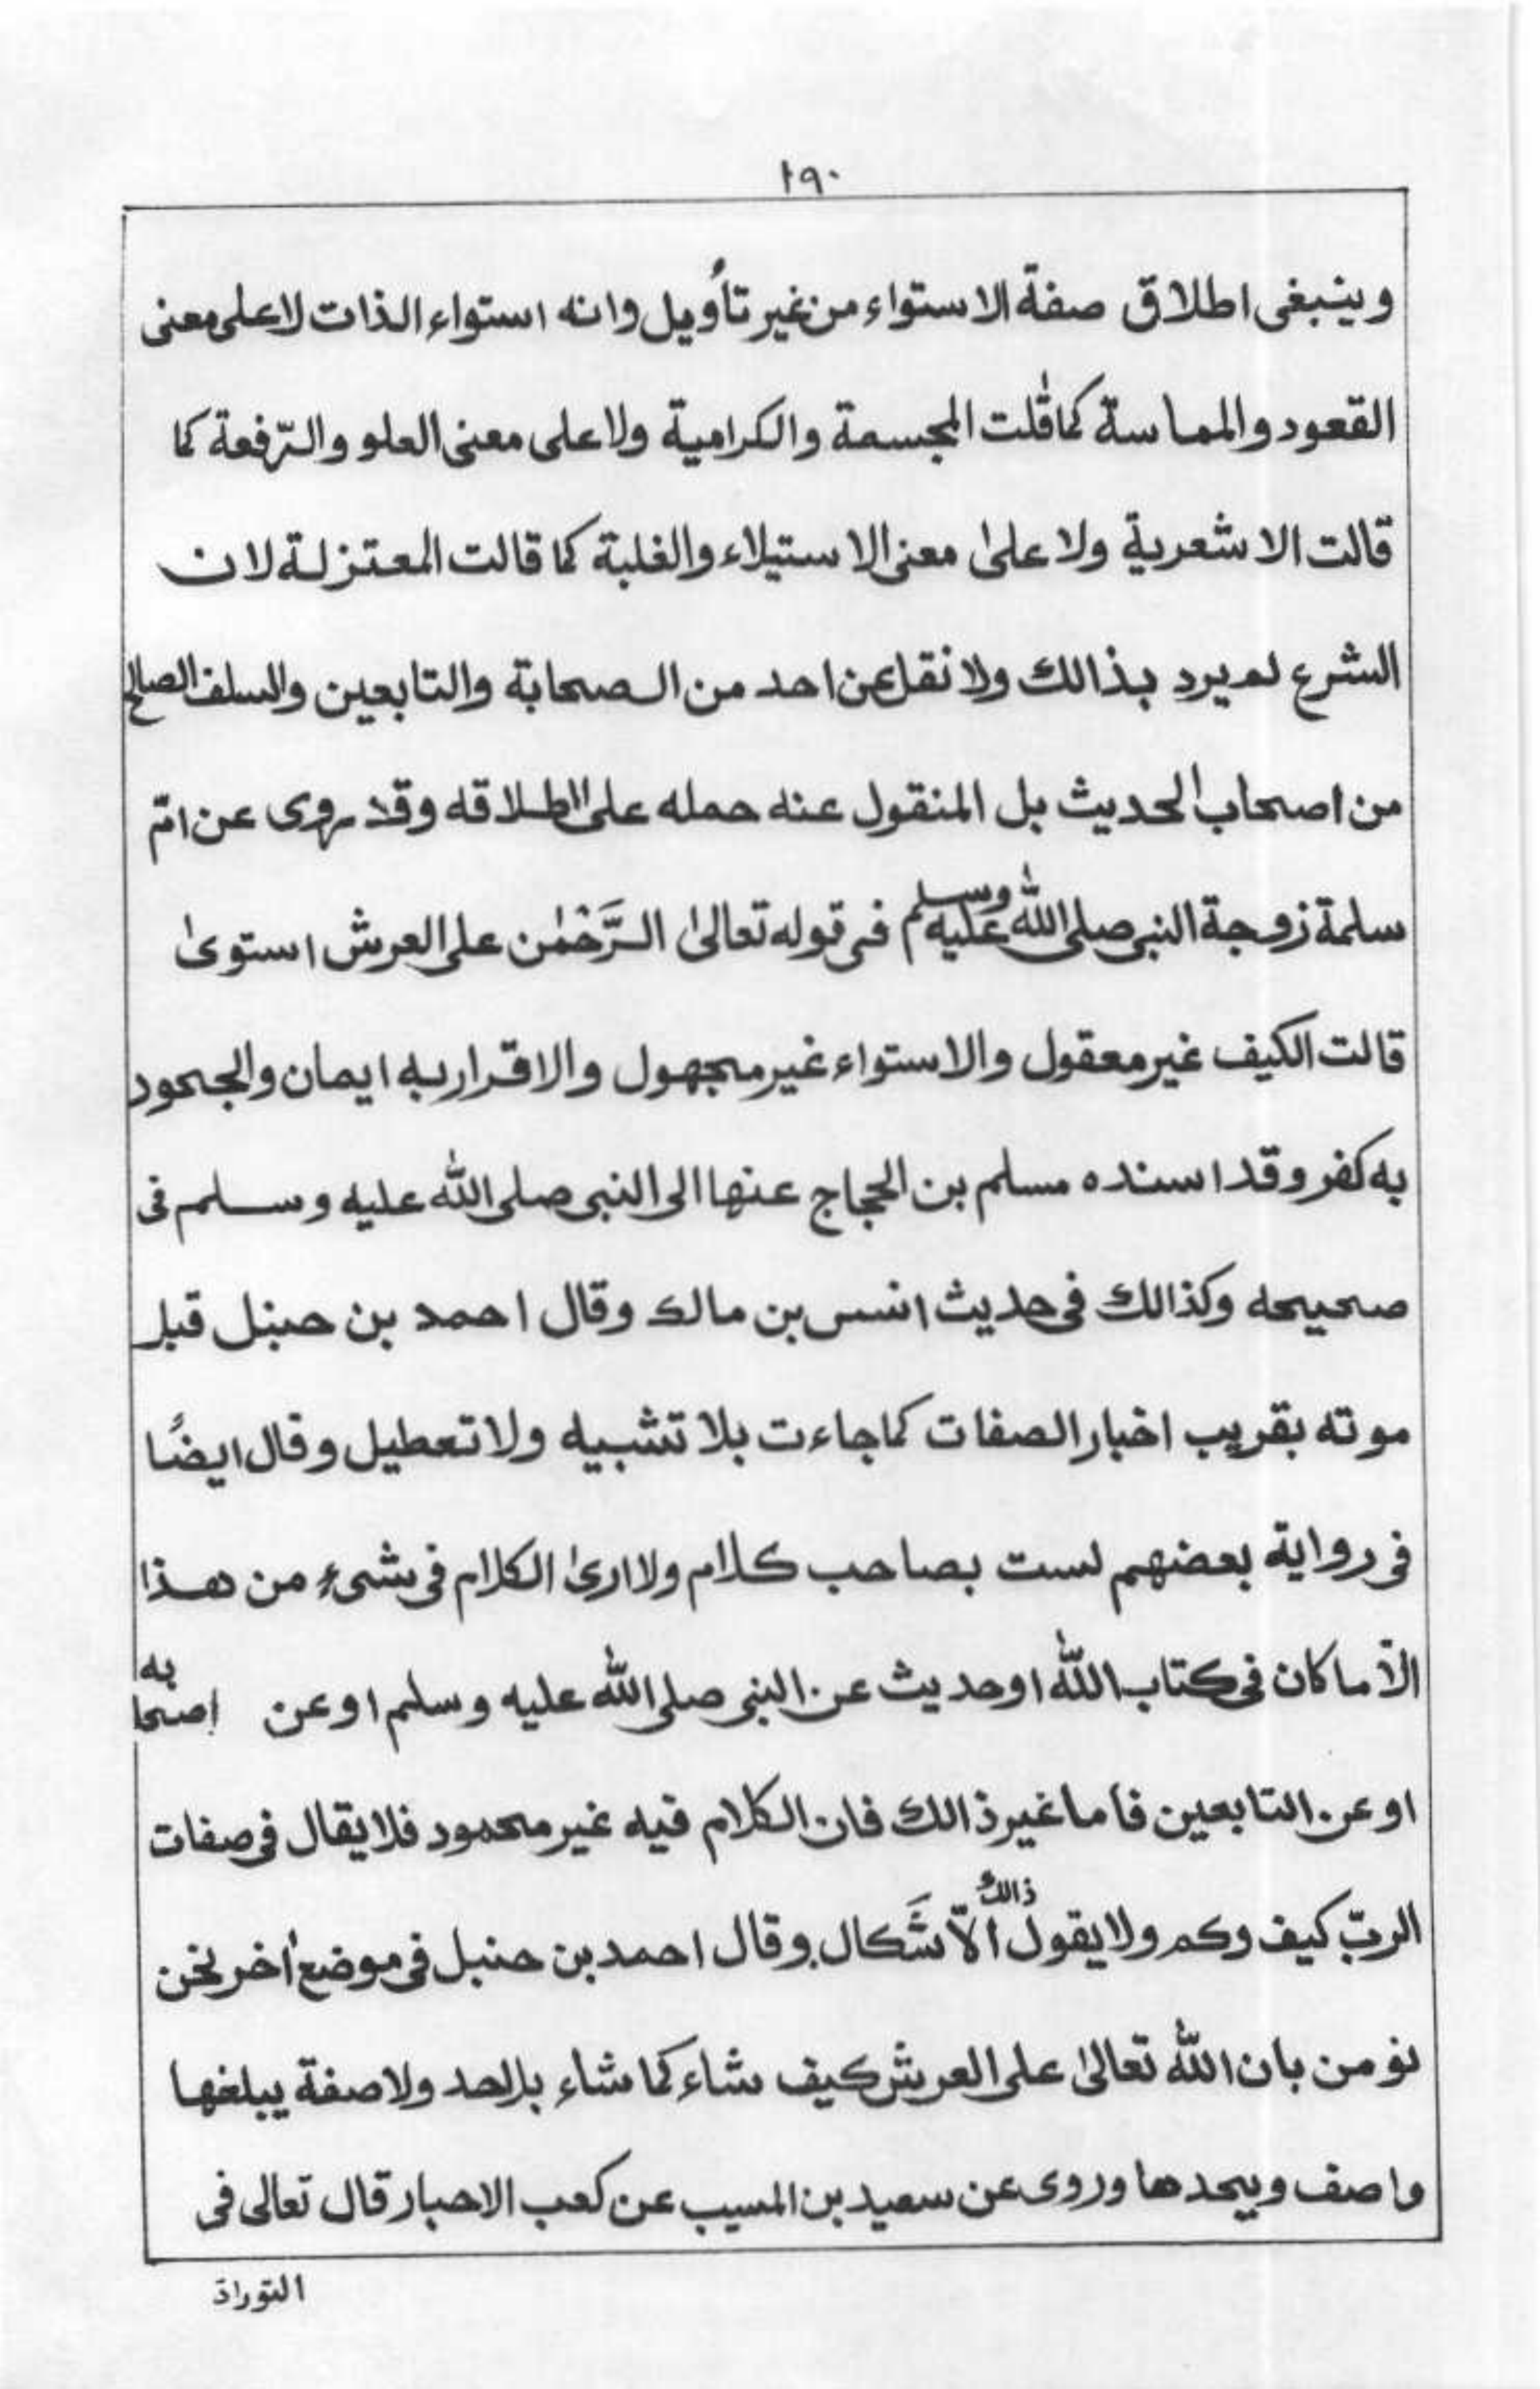 ١٩٠
وينبغى اطلاق صفة الاستواء من غير تأويل وانه استواء الذات لا على معنى
القعود والمماسة كما قلت المجسمة والكرامية ولا على معنى العلو والرّفعة كما
قالت الاشعرية ولا علىٰ معنى الاستيلاء والغلبة كما قالت المعتزلة لان
الشرع لم يرد بذالك ولا نقل عن احد من الصحابة والتابعين والسلف الصالح
من اصحاب الحديث بل المنقول عنه حمله على اطلاقه وقد روى عن امّ
سلمة زوجة النبى صلى الله عليه وسلم فى قوله تعالىٰ الرَّحْمٰن على العرش استوىٰ
قالت الكيف غير معقول والاستواء غير مجهول والاقرار به ايمان والجحود
به كفر وقد اسنده مسلم بن الحجاج عنها الى النبى صلى الله عليه وسلم فى
صحيحه وكذالك فى حديث انس بن مالك وقال احمد بن حنبل قبل
موته بقريب اخبار الصفات كما جاءت بلا تشبيه ولا تعطيل وقال ايضًا
فى رواية بعضهم لست بصاحب كلام ولا ارىٰ الكلام فى شىء من هذا
الّا ما كان فى كتاب اللّٰه او حديث عن النبى صلى اللّٰه عليه وسلم او عن اصحابه
او عن التابعين فأما غير ذالك فان الكلام فيه غير محمود فلا يقال فى صفات
الربّ كيف وكم ولا يقول ذالك الّا شَكال وقال احمد بن حنبل فى موضع أخر نحن
نؤمن بان اللّٰه تعالىٰ على العرش كيف شاء كما شاء بلاحد ولا صفة يبلغها
واصف ويحدها وروى عن سعيد بن المسيب عن كعب الاحبار قال تعالى فى
التوراة